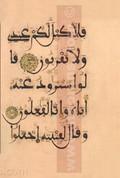 فَلَا كَيْلَ لَكُمْ عِندِي
وَلَا تَقْرَبُونِ قَا
لُوا سَنُرَاوِدُ عَنْهُ
أَبَاهُ وَإِنَّا لَفَعِلُونَ
وَقَالَ لِفِتْيَتِهِ اجْعَلُوا